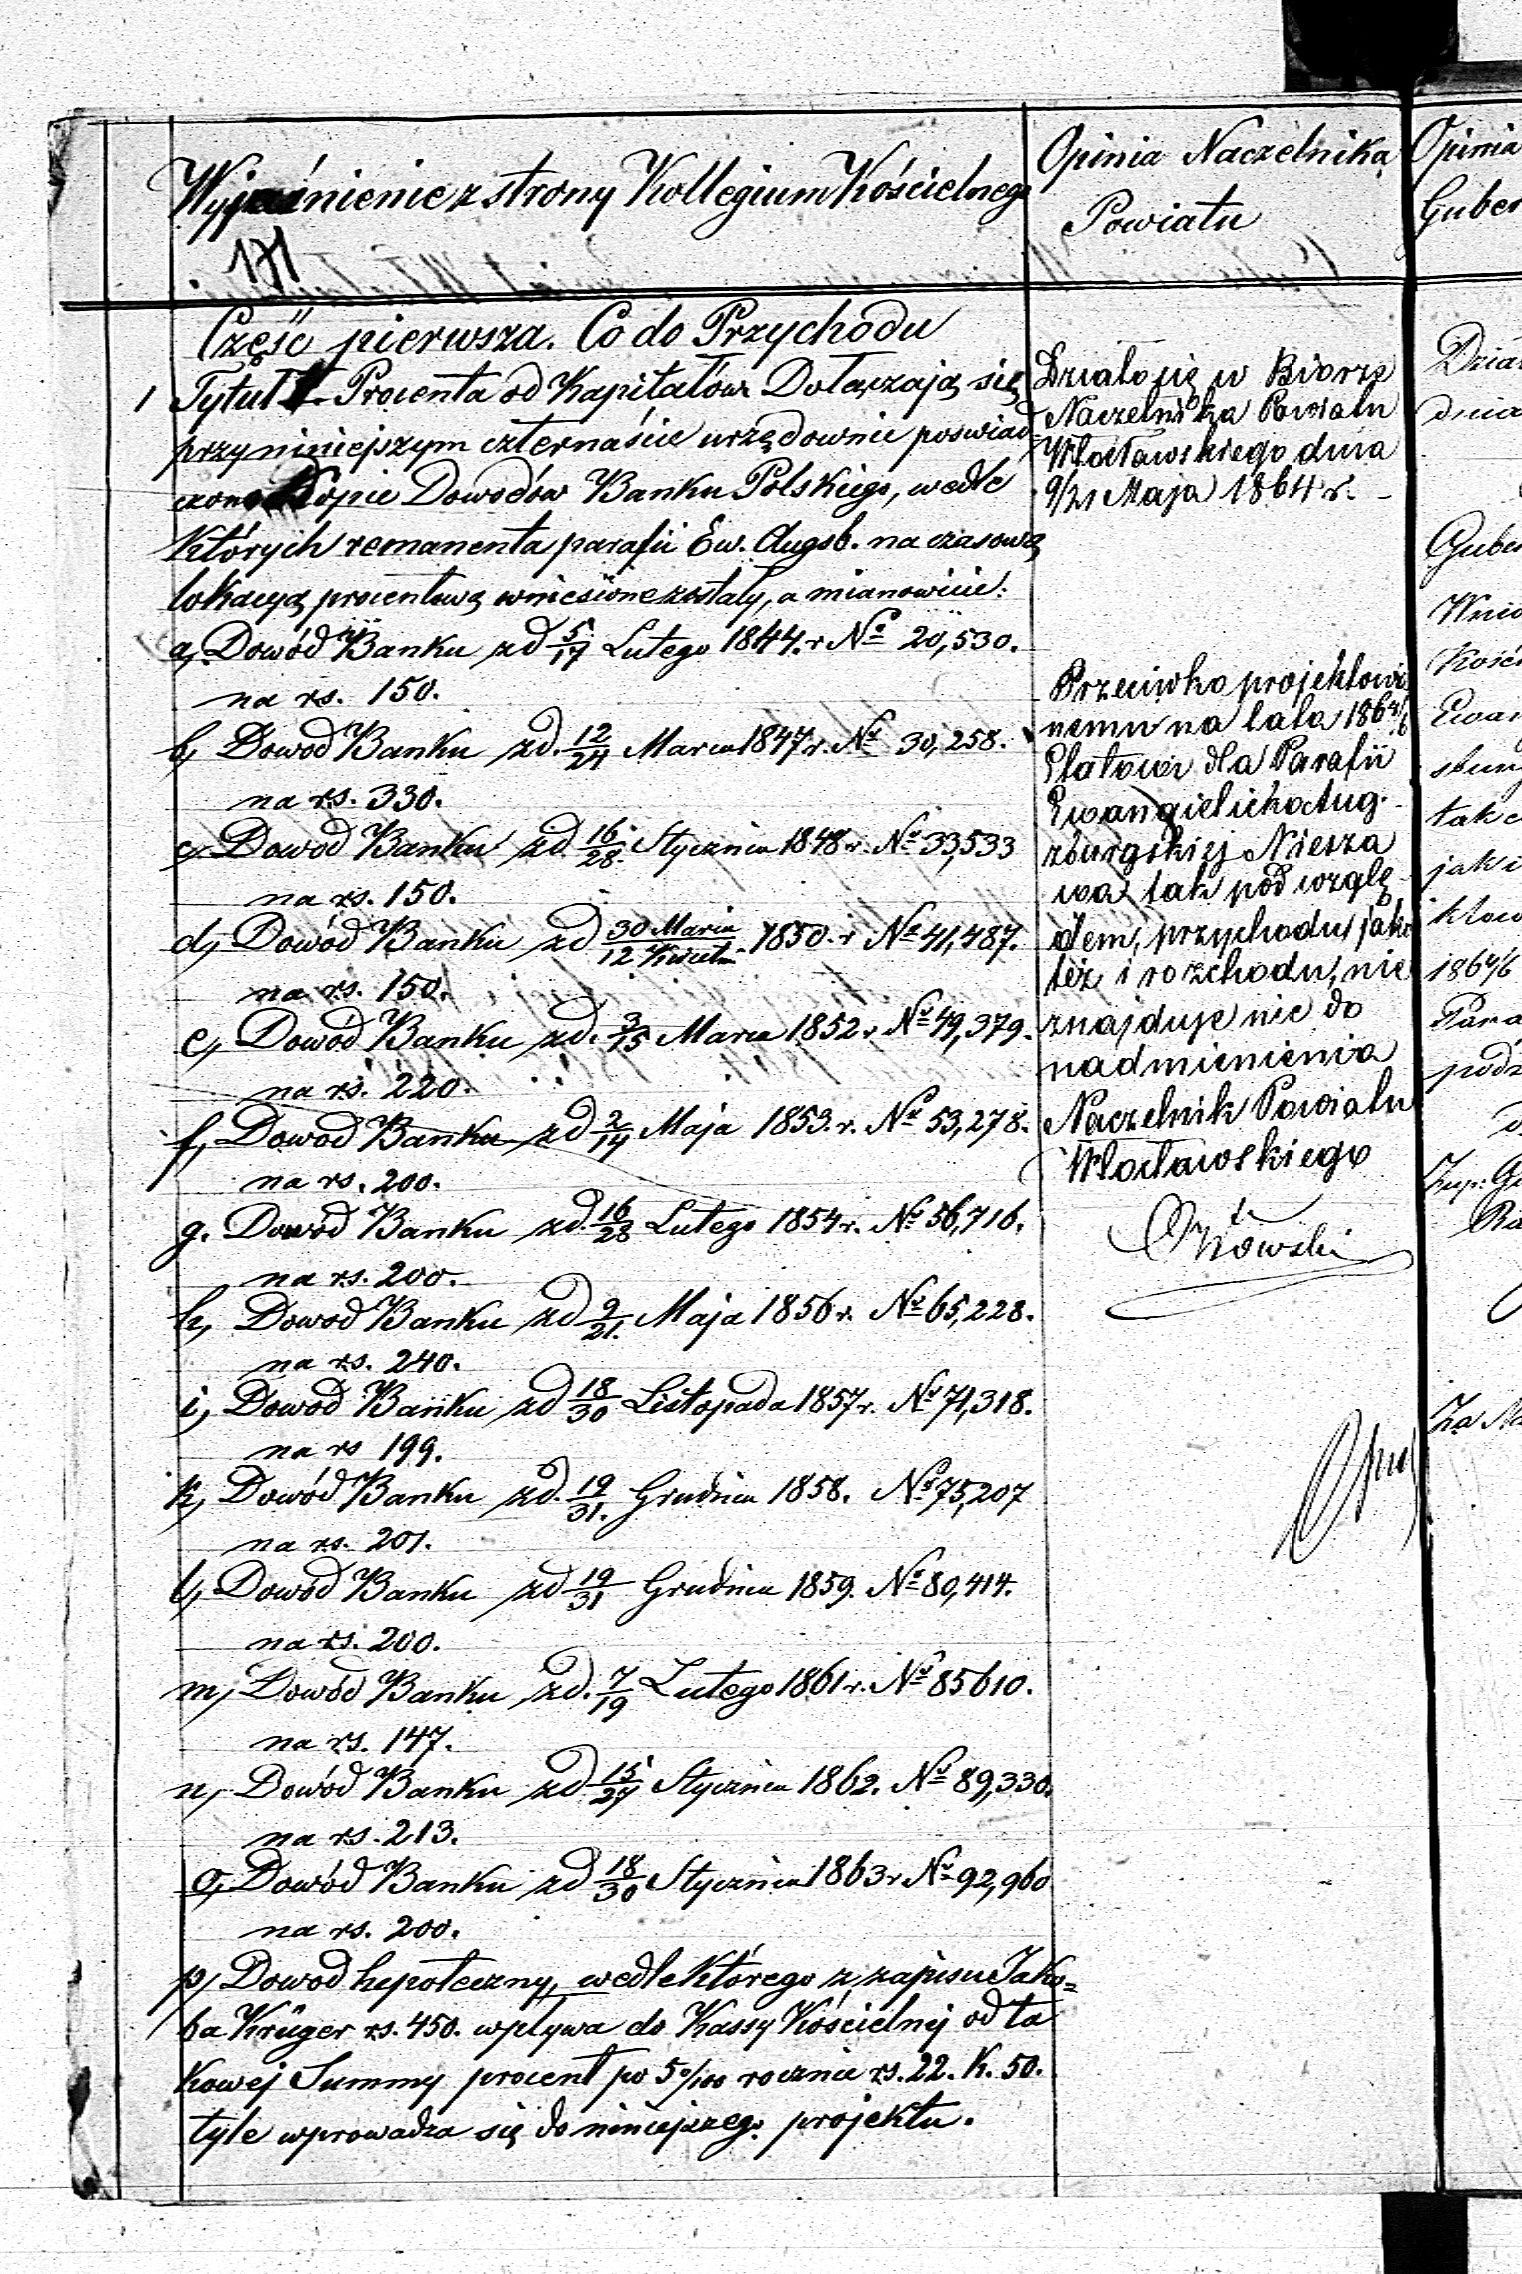 Wyjaśnienie z strony Kollegium Kościelnego
171
Część pierwsza. Co do Przychodu
1 Tytuł I. Procenta od Kapitałów Dołaczają się
przy niniejszym czternaście urzędownie poswiad=
czone Kopie Dowodów Banku Polskiego, wedle
Których remanenta parafii Ew. Augsb. na czasową
lokacyą procentową wniesione zostały, a mianowicie:
a, Dowód Banku zd 5/17 Lutego 1844. r No 20,530.
na rs. 150.
b, Dowód Banku zd. 12/24 Marca 1847 r. No 30,258.
na rs. 330.
c, Dowód Banku zd. 16/28. Stycznia 1848 r. No 33,533
na rs. 150.
d, Dowód Banku zd 30 Marca/12 Kwietn 1850. r No 41,487.
na rs. 150.
e, Dowód Banku zd. 3/15 Marca 1852. r No 49,379.
na rs. 220.
f, Dowod Banku zd 2/14 Maja 1853. r. No 53,278.
na rs. 200.
g. Dowod Banku zd. 16/28 Lutego 1854 r. No 56,716.
na rs. 200.
h, Dowod Banku zd 9/21. Maja 1856 r. No 65,228.
na rs. 240.
i, Dowod Banku zd 18/30 Listopada 1857 r. No 71,318.
na rs 199.
k, Dowód Banku zd. 19/31. Grudnia 1858. No 75,207
na rs. 201.
l, Dowód Banku zd 19/31 Grudnia 1859. No 80,414.
na rs. 200.
m, Dowód Banku zd. 7/19 Lutego 1861 r. No 85610.
na rs. 147.
n, Dowód Banku zd 15/27 Stycznia 1862. No 89,330.
na rs. 213.
o, Dowód Banku zd 18/30 Stycznia 1863 r No 92,960
na rs. 200.
p, Dowod hypoteczny, wedle Którego z zapisu Jako=
ba Krüger rs. 450. wpływa do Kassy Kościelnej od ta
Kowej Summy procent po 5 0/100 rocznie rs. 22. K. 50.
tyle wprowadza się do niniejszego projektu.
Opinia Naczelnika
Powiatu
Działo się w Biorze
Naczelnika Powiatu
Włocławskiego dnia
9/21 Maja 1864 r.
Przeciwko projektowa
nemu na lata 1864/6
Etatowi dla Parafii
Ewangielicko Aug.
zburgskiej Niesza
wa tak pod wzglę
dem, przychodu, jako
też i rozchodu, nie
znajduje nic do
nadmienienia
Naczelnik Powiatu
Włocławskiego
Opinia
Guber
dnia
Guber
Kości
Ewan
jak i
1864/6
Para
Za Na